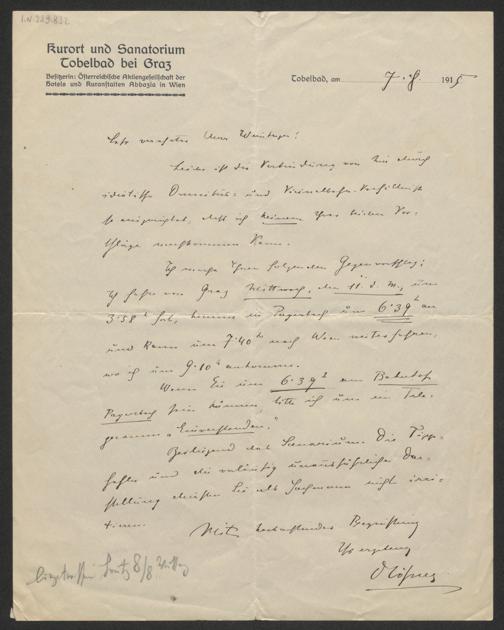 I.N. 229.832
Kurort und Sanatorium
Tobelbad bei Graz
Besitzerin: Österreichische Aktiengesellschaft der
Hotels und Kuranstalten Abbazia in Wien
Tobelbad, am 7. 8. 1915
Sehr verehrter Herr
Leider ist die Verbindung von hier durch
idiotische Omnibus- und Vicinalbahn-Verhältnisse
so ungünstig, daß ich keinem Ihrer beiden Vor-
schläge nachkommen kann.
Ich mache Ihnen folgenden Gegenvorschlag:
Ich fahre von Graz Mittwoch, den 11. d. M., um
3·58 h fort, komme in Payerbach um 6·39 h an
und kann um 7·40 h nach Wien weiterfahren,
wo ich um 9·10 h ankomme.
Wenn Sie um 6·39 h am Bahnhof
Payerbach sein können, bitte ich um ein Tele-
gramm „Einverstanden."
Beiliegend das Scenarium. Die Tipp-
fehler und die vorläufig unausführliche Dar-
stellung dürften Sie als Fachmann nicht irri-
tieren.
Mit hochachtender Begrüßung
Ihr ergebener
8/8